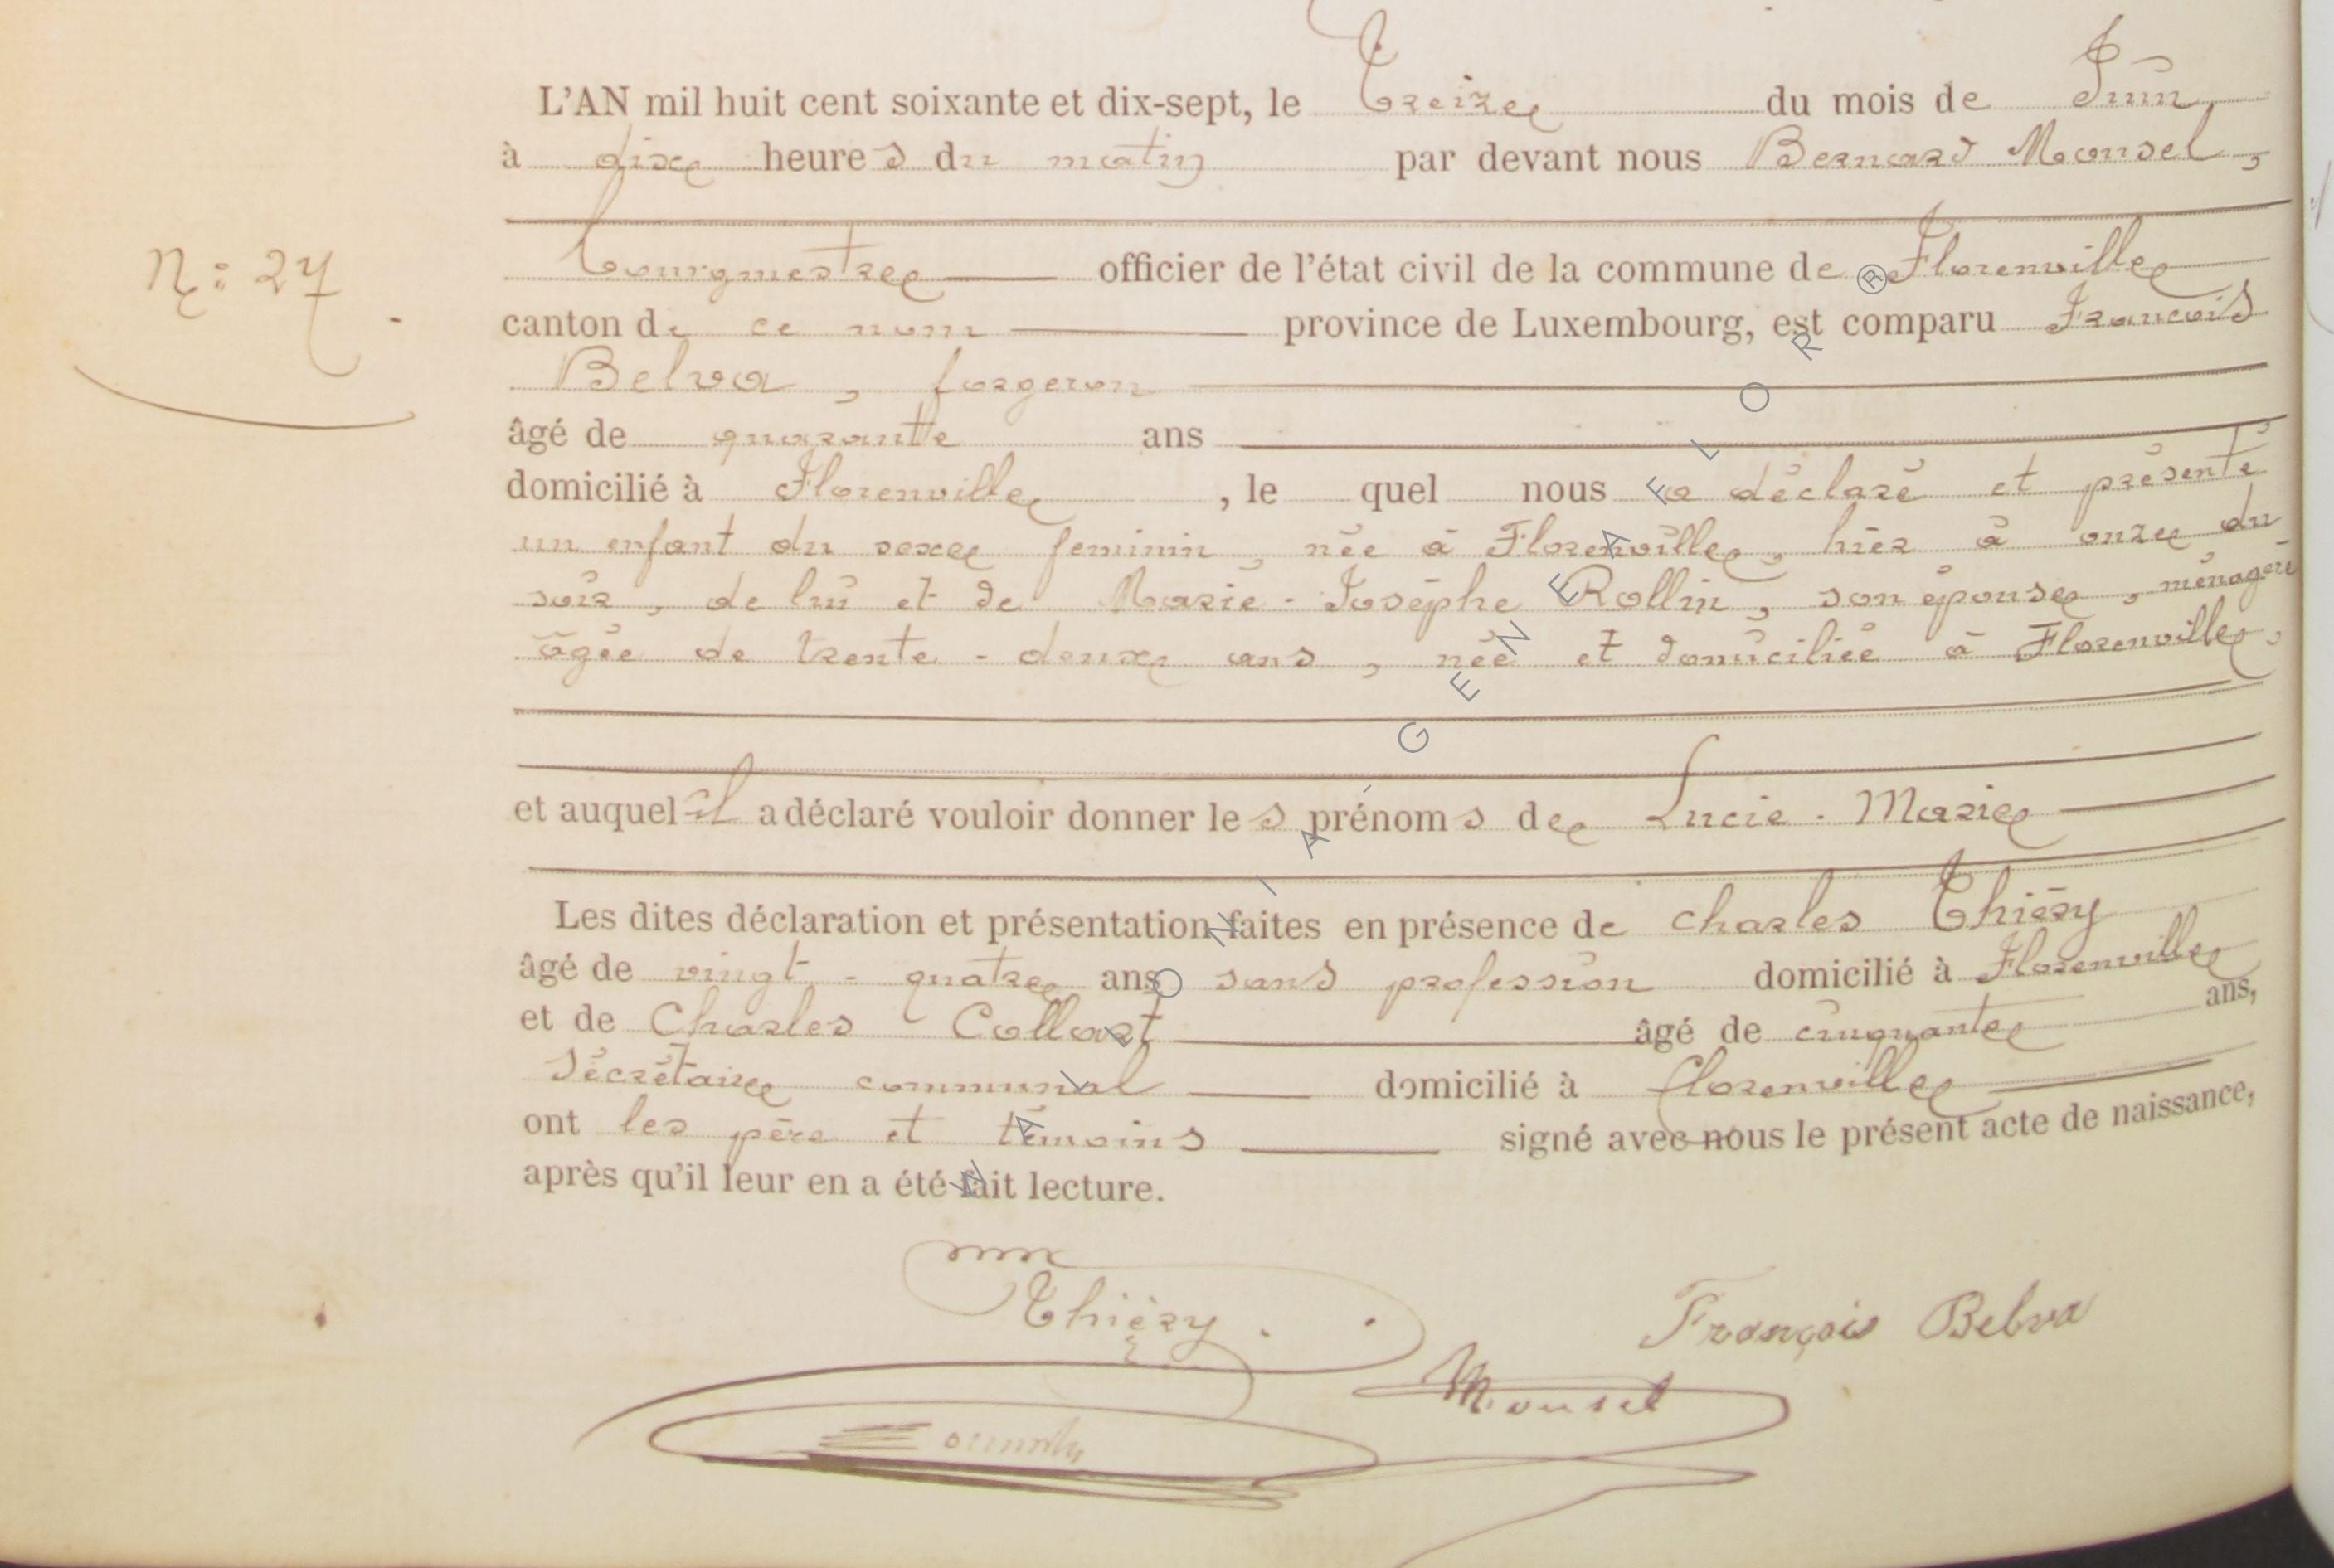 L'AN mil huit cent soixante et dix-sept, le Treize du mois de Juin
à dixe heures du matin par devant nous Bernard Monsel,
N°: 27
bourgmestre officier de l'état civil de la commune de Florenville
canton de ce nom province de Luxembourg, est comparu Francois
Belva, forgeron
âgé de quarante ans
domicilié à Florenville, le quel nous a déclaré et présenté
un enfant du sexe feminin, née à Florenville, hier à onze du
soir, de lui et de Marie-Joséphe Rollin, son épouse, ménagère
âgée de trente-deux ans, née et domiciliée à Florenville,
et auquel il a déclaré vouloir donner les prénoms de Lucie-Marie
Les dites déclaration et présentation faites en présence de charles Thiéry
âgé de vingt-quatre ans sans profession domicilié à Florenville
et de Charles Collart âgé de cinquante ans,
Sécrétaire communal domicilié à florenville
ont les père et témoins signé avec nous le présent acte de naissance,
après qu'il leur en a été fait lecture.
Thiéry.
François Belva
Monsel
WALLONIA GENEAFLOR R®